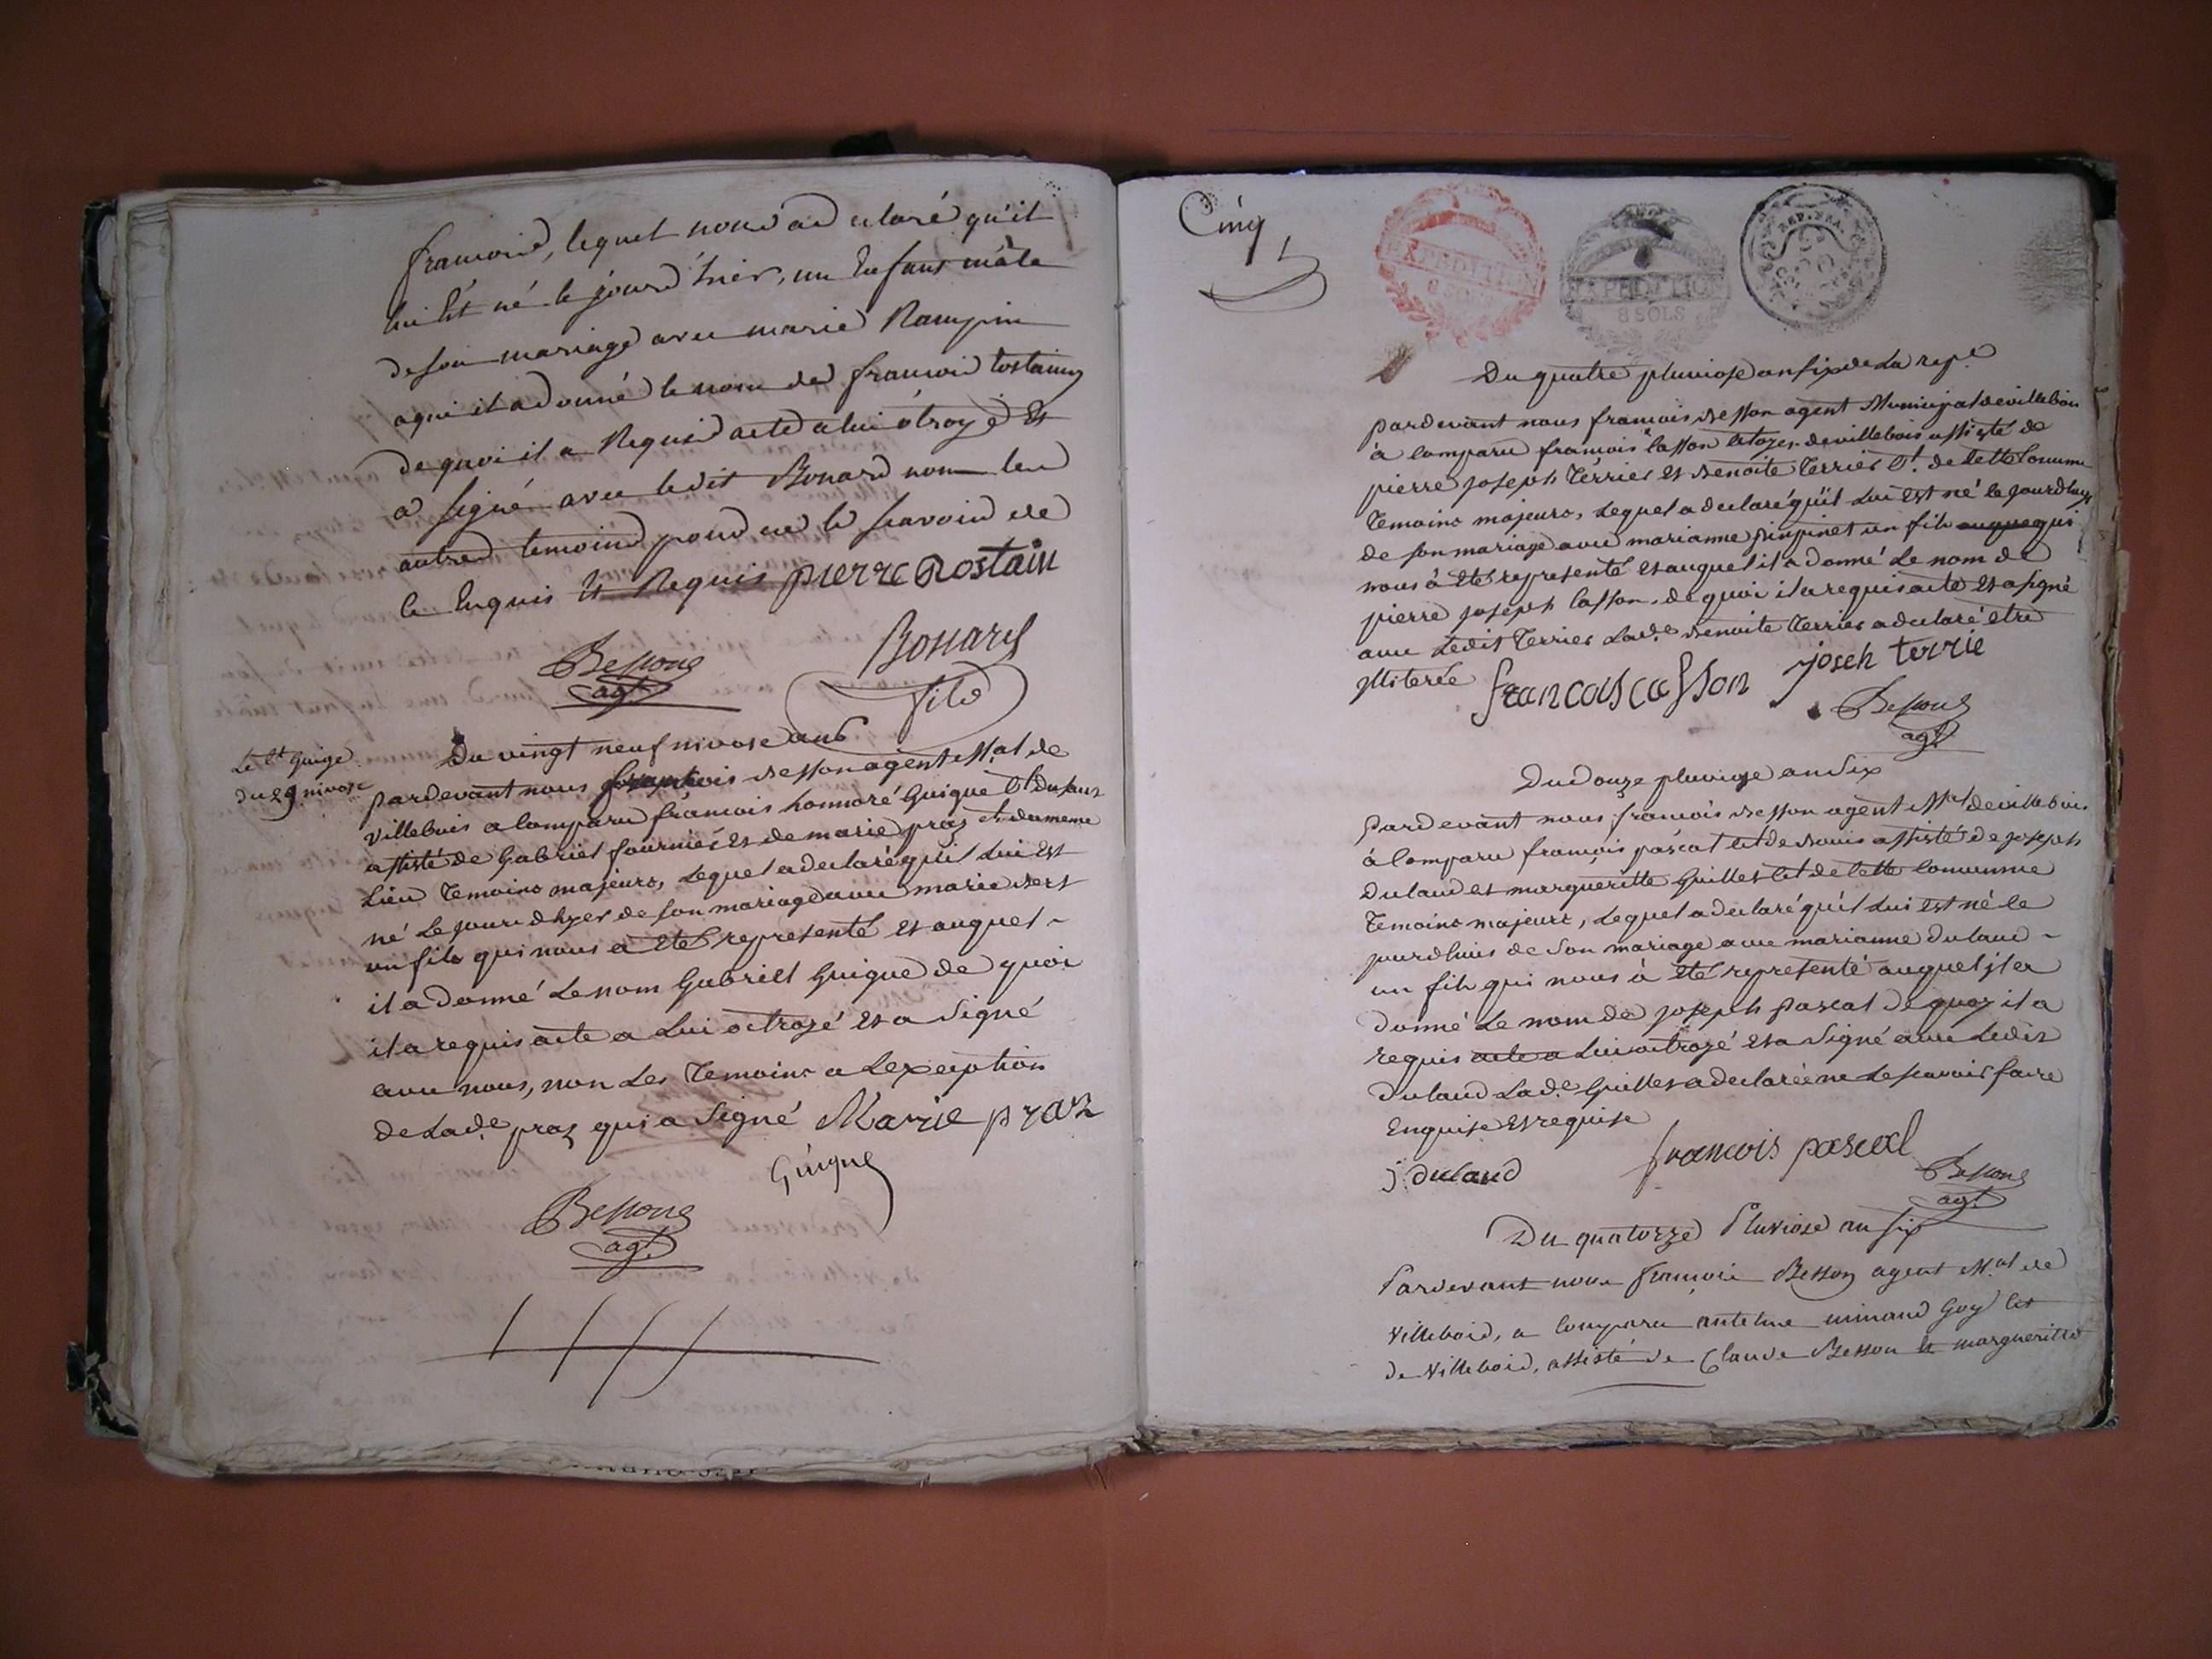 francois, lequel nous a declaré qu'il
lui Est né le jour d'hier, un Enfans mâle
de son mariage avec marie Rampin
a qui il a donné le nom de francois Rostaing
de quoi il a Requis acte a lui otroyé Et
a signé avec ledit Bonard non les
autres temoins pour ne le scavoir de
ce Enquis Et Requis pierre Rostain
Bonard
fils
Besson
agt
Le Ct Guige
du 29 nivose
Du vingt neuf nivose an 6
pardevant nous francois Besson agent Mal de
villebois a Comparu francois honnoré Guigue Ct Dulieu
assisté de Gabriel fournier Et de marie praz ct. du meme
Lieu Temoins majeurs, Lequel a declaré qu'il Lui Est
né Le jour d'hyer de son mariage avec marie
un fils qui nous a Eté representé Et auquel
il a donné Le nom Gabriel Guigue de quoi
il a requis acte a Lui octroyé Et a Signé
avec nous, non Les Temoins a Lexception
de Lade praz qui a Signé Marie praz
Guigue
Besson
agt
Cinq
EXPEDITION
8 SOLS
EXPEDITION
8 SOLS
REP. FRA.
Du quatre pluviose an six de La repe
pardevant nous francois Besson agent Municipal de villebois
à Comparu francois Casson Citoyen de villebois assisté de
pierre joseph Terrier Et Benoite Terrier Ct. de Cette Commune
Temoins majeurs, Lequel a declaré qu'il Lui Est né le jourdhuy
de son mariage avec marianne pinpinet un fils qui
nous à Eté representé Et auquel il a donné Le nom de
pierre joseph Casson, de quoi il a requis acte Et a signé
avec Ledit Terrier Lade Benoite Terrier a declaré etre
jlliterée francois casson joseh terrie
Besson
agt
Du douze pluviose an Six
Pardevant nous francois Besson agent Mal de villebois
à Comparu francois pascal Cit de Bouis assisté de joseph
Dulaud Et margueritte Guillet Cit de Cette Commune
Temoins majeurs, Lequel a declaré qu'il Lui Est né le
jourdhuis de Son mariage avec marianne Dulaud
un fils qui nous à Eté representé auquel jl a
Donné Le nom de joseph pascal de quoy il a
requis acte a Lui octroyé Et a Signé avec Ledit
Dulaud Lade Guillet a declarée ne Le scavoir faire
Enquise Et requise
j: dulaud francois pascal
Besson
agt
Du quatorze Pluviose an six
Pardevant nous francois Besson agent Mal de
Villebois, a Comparu antelme minand Goy Cit
de Villebois, assisté de Claude Besson Et margueritte